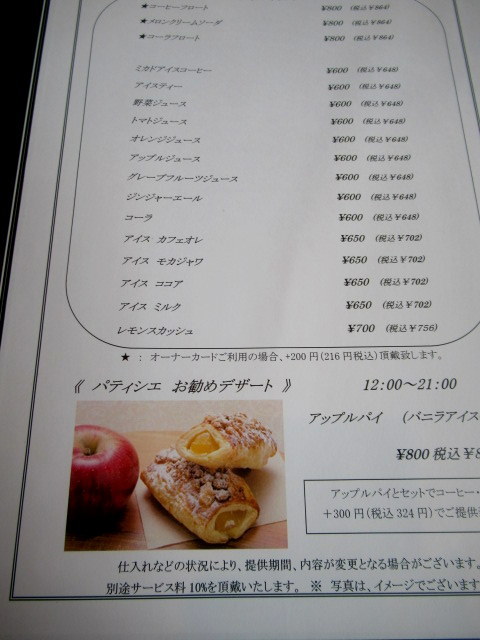 ★コーヒーフロート ¥800 (税込¥864)
★メロンクリームソーダ ¥800 (税込¥864)
★コーラフロート ¥800 (税込¥864)
ミカドアイスコーヒー ¥600 (税込¥648)
アイスティー ¥600 (税込¥648)
野菜ジュース ¥600 (税込¥648)
トマトジュース ¥600 (税込¥648)
オレンジジュース ¥600 (税込¥648)
アップルジュース ¥600 (税込¥648)
グレープフルーツジュース ¥600 (税込¥648)
ジンジャーエール ¥600 (税込¥648)
コーラ ¥600 (税込¥648)
アイス カフェオレ ¥650 (税込¥702)
アイス モカジャワ ¥650 (税込¥702)
アイス ココア ¥650 (税込¥702)
アイス ミルク ¥650 (税込¥702)
レモンスカッシュ ¥700 (税込¥756)
★ : オーナーカードご利用の場合、+200円(216円税込)頂戴致します。
《 パティシエ お勧めデザート 》 12:00～21:00
アップルパイ (バニラアイス
¥800 税込¥8
アップルパイとセットでコーヒー・
+300円(税込324円)でご提供
仕入れなどの状況により、提供期間、内容が変更となる場合がございます。
別途サービス料10%を頂戴いたします。 ※ 写真は、イメージでございます